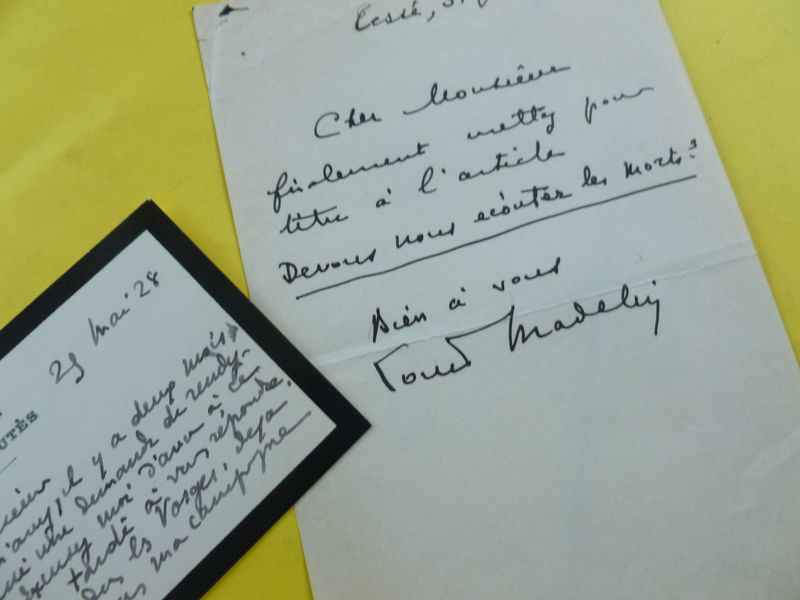 Cher Monsieur
finalement mettez pour
titre à l'article
Devons nous écouter les morts ?
Bien à vous
Louis Madelin
25 mai 28
UTÉS
il y a deux mois,
une demande de rendez-
excusez moi d'avoir à ce
tardé à vous répondre.
les Vosges, déjà
ma campagne